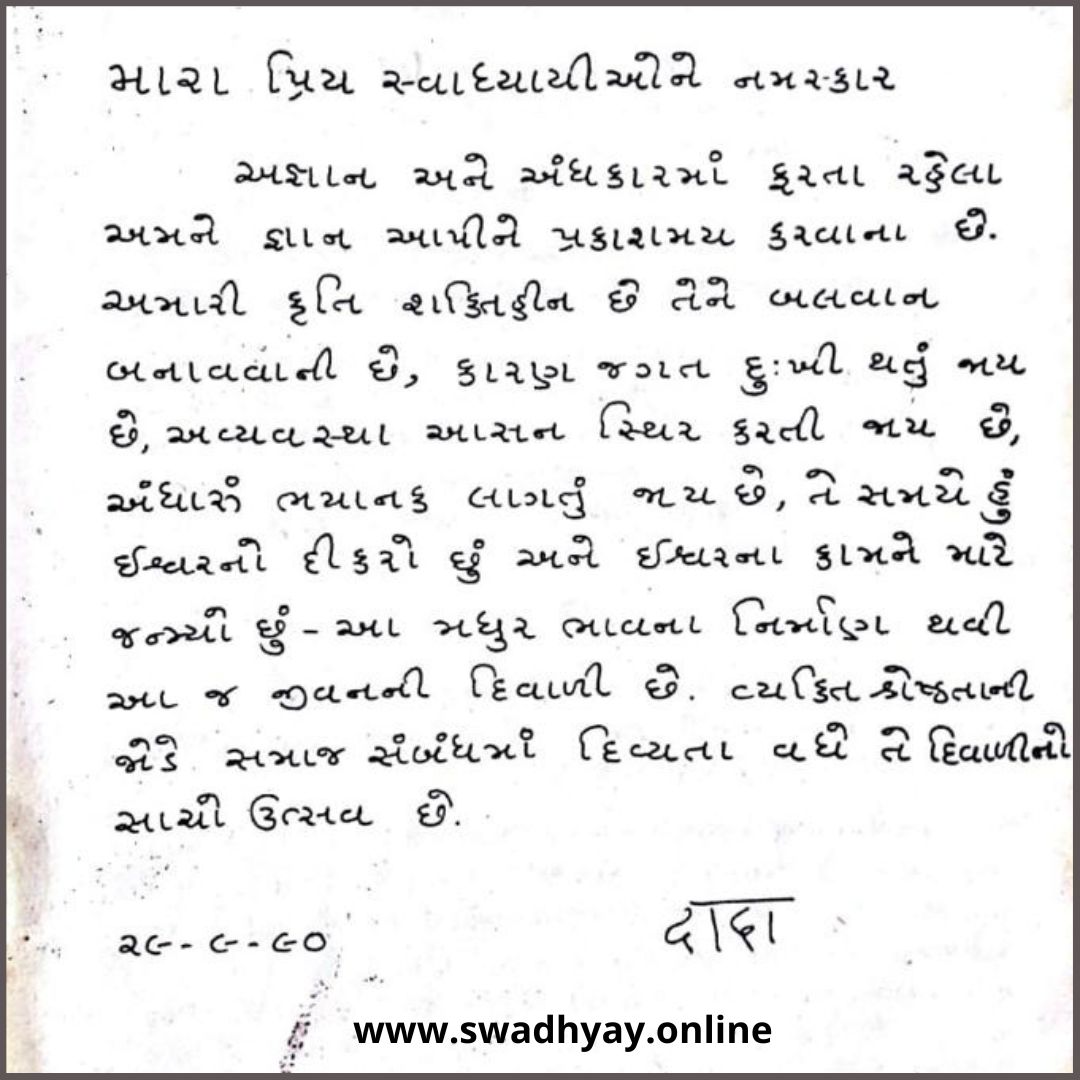 મારા પ્રિય સ્વાધ્યાયીઓને નમસ્કાર
અજ્ઞાન અને અંધકારમાં ફરતા રહેલા
અમને જ્ઞાન આપીને પ્રકાશમય કરવાના છે.
અમારી કૃતિ શક્તિહીન છે તેને બલવાન
બનાવવાની છે, કારણ જગત દુઃખી થતું જાય
છે, અવ્યવસ્થા આસન સ્થિર કરતી જાય છે,
અંધારું ભયાનક લાગતું જાય છે, તે સમયે હું
ઈશ્વરનો દીકરો છું અને ઈશ્વરના કામને માટે
જન્મ્યો છું - આ મધુર ભાવના નિર્માણ થવી
આ જ જીવનની દિવાળી છે. વ્યક્તિ શ્રેષ્ઠતાની
જોડે સમાજ સંબંધમાં દિવ્યતા વધે તે દિવાળીનો
સાચો ઉત્સવ છે.
૨૯-૯-૯૦ दादा
www.swadhyay.online